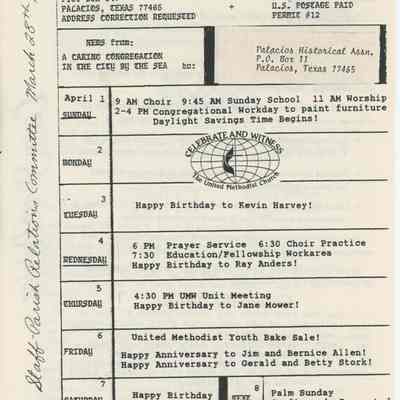 PALACIOS, TEXAS 77465
ADDRESS CORRECTION REQUESTED
+
U.S. POSTAGE PAID
PERMIT #12
NEWS from:
A CARING CONGREGATION
IN THE CITY BY THE SEA to:
Palacios Historical Assn.
P.O. Box 11
Palacios, Texas 77465
Staff-Parish Relations Committee March 28th,
April 1
SUNDAY
9 AM Choir 9:45 AM Sunday School 11 AM Worship
2-4 PM Congregational Workday to paint furniture
Daylight Savings Time Begins!
2
MONDAY
CELEBRATE AND WITNESS
The United Methodist Church
3
TUESDAY
Happy Birthday to Kevin Harvey!
4
WEDNESDAY
6 PM Prayer Service 6:30 Choir Practice
7:30 Education/Fellowship Workarea
Happy Birthday to Ray Anders!
5
THURSDAY
4:30 PM UMW Unit Meeting
Happy Birthday to Jane Mower!
6
FRIDAY
United Methodist Youth Bake Sale!
Happy Anniversary to Jim and Bernice Allen!
Happy Anniversary to Gerald and Betty Stork!
7
SATURDAY
Happy Birthday
8
Palm Sunday